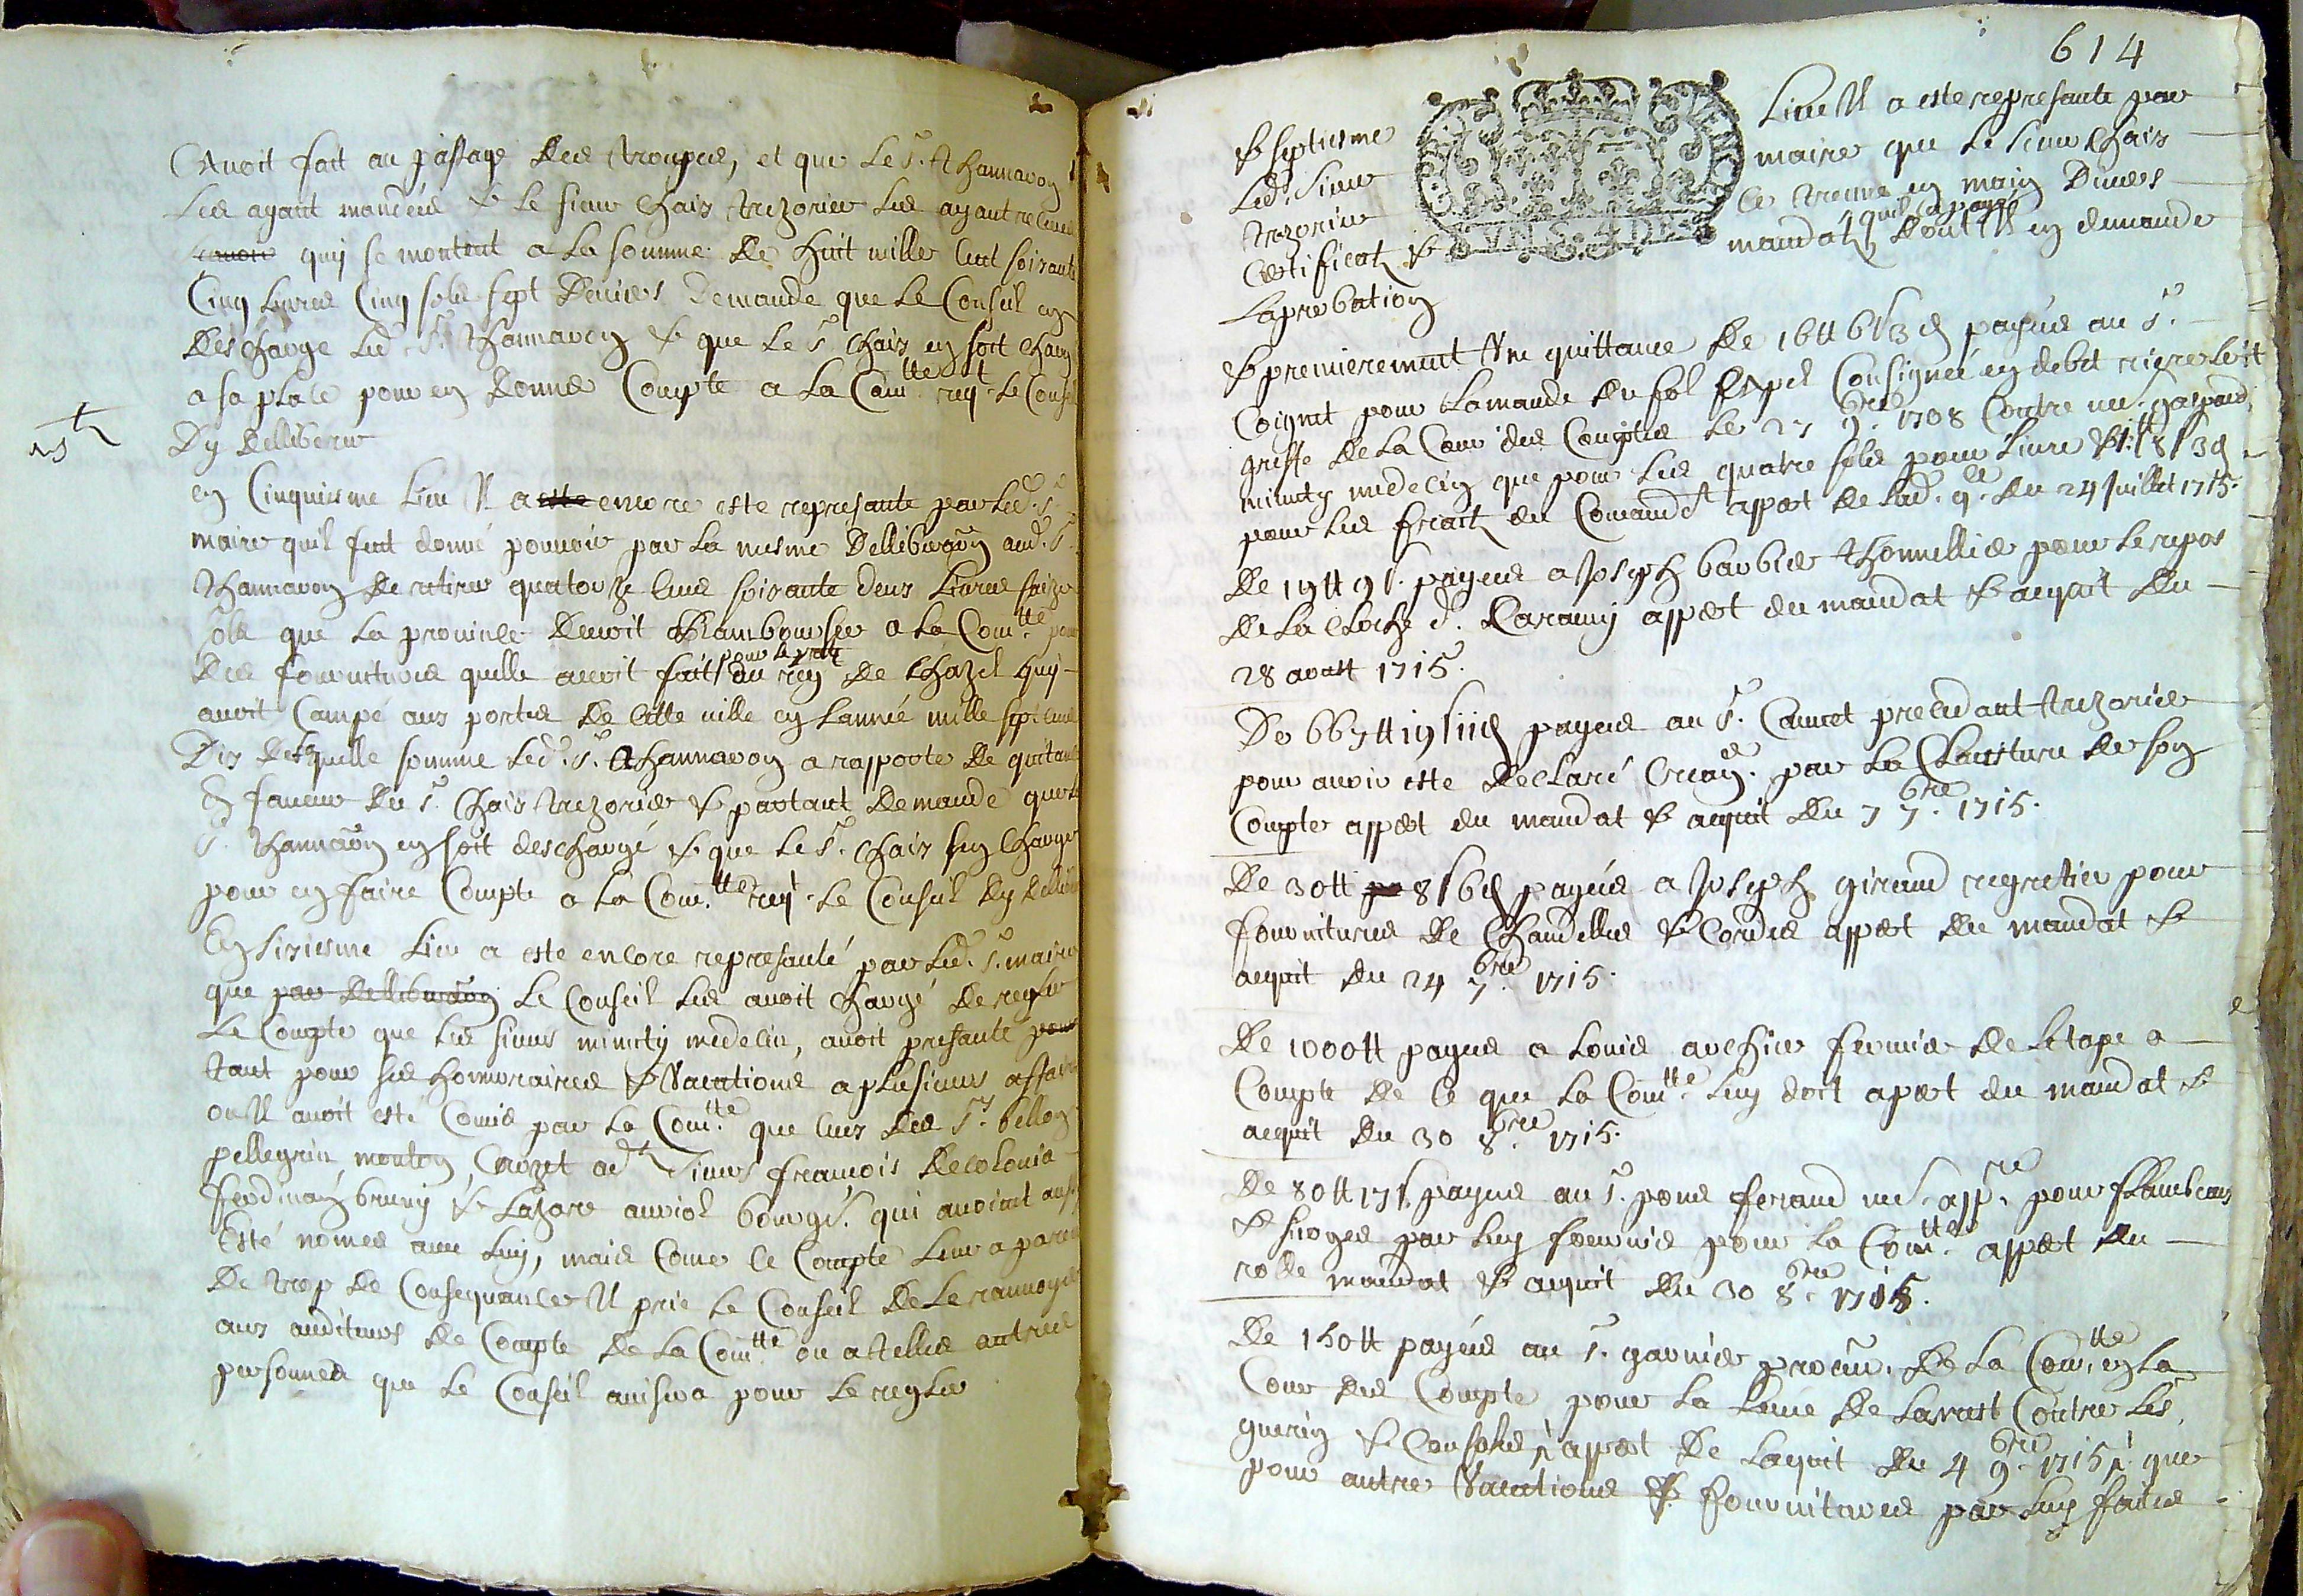 avoit fait au passage des troupes, et que le Sr. Thannaron
les ayant mandées & le sieur Chaix trezorier les ayant retirées
quy se montent a la somme de huit mille cent soixante
cinq livres cinq sols sept deniers demande que le Conseil en
descharge led. Sr. Thannaron & que le Sr. Chaix en soit chargé
a sa place pour en donner Compte a la Com.tte reqt. le Conseil
dy delliberer
en Cinquiesme lieu Il a este encore este representé par led. Sr.
maire quil feut donné pouvoir par la mesme Delliberaon aud. Sr.
Thannaron de retirer quatorze cens soixante deux livres saize
sols que la province devoit Rambourser a la Com.tte pour
des fournitures quelle avoit fait pour le prest au regt de Chazel quy
avoit Campé aux portes de cette ville en lannée mille sept cens
Dix desquelle somme led. Sr. Thannaron a rapporté de quitance
En faveur du Sr. Chaix trezorier & partant demande que le
Sr. Thannaron en soit deschargé & que le Sr. Chaix sen charge
pour en faire Compte a la Com.tte reqt. le Conseil dy delliberer
En sixiesme lieu a este encore representé par led. Sr. maire
que par delliberaon le Conseil les avoit chargé de regler
le Compte que les sieurs minuty medecin, avoit presenté pour
tant pour ses honnoraires & vacations a plusieurs affaires
ou Il avoit esté Comis par la Com.tte que ceux des Srs. bellon
pellegrin, mouton, Crozet ad.ts Sieurs francois decolonia
ferdinan bruny & Lazare auriol bourgs. qui avoient aussy
Esté nomes avec luy, mais Come ce Compte leur a paru
de trop de Consequance Il prie le Conseil de le ranvoyer
aux auditeurs de Compte de la Com.tte ou a telles autres
personnes que le Conseil avisera pour le regler
614
& septiesme
led. Sieur
trezorier
Certificat &
laprobation
VN S. 4 DEN
lieu Il a este representé par
maire que le sieur Chaix
ce treuve en main Divers
mandat quil a payé dont Il en demande
& premierement Une quittance de 16 tt 6 s 3 d payée au Sr.
Coignet pour lamande du fol apel Consignée en debet riere led.
greffe de la Cour des Comptes le 27 9.bre 1708 Contre me. gaspard
minuty medecin que pour les quatre sols pour livre & 1 tt 8 s 3 d
pour les fraix du Comandt. appert de lad. q.ce du 24 Juillet 1715.
De 19 tt 9 s. payes a Joseph barbier thonnellier pour le repos
de la Cloche St. Caramy appert du mandat & aquit du
28 aoust 1715.
De 667 tt 19 s 11 d payes au Sr. Caucet precedant trezorier
pour avoir este declaré Crean.er par la Clausture de son
Compte appert du mandat & aquit du 7 7.bre 1715.
De 30 tt 8 s 6 d payés a Joseph giraud regretier pour
fournitures de Chandelles & Cordes appert du mandat &
aequit du 24 7.bre 1715.
De 1000 tt payes a Louis archier fermier de letape a
Compte de ce que la Com.tte luy doit apert du mandat &
aequit du 30 8.bre 1715.
De 80 tt 17 s. payes au Sr. pons feraud me. app.re pour flambeaux
& sirogés par luy fournis pour la Com.tte appert du
rolle mandat & aquit du 30 8.bre 1715.
De 150 tt payés au Sr. garnier procur. de la Com.tte en la
Cour des Compte pour la levée de larrest Contre les
guerin & Consors, appert de laquit du 4 9.bre 1715, que
pour autre vacations & fournitures par luy faites